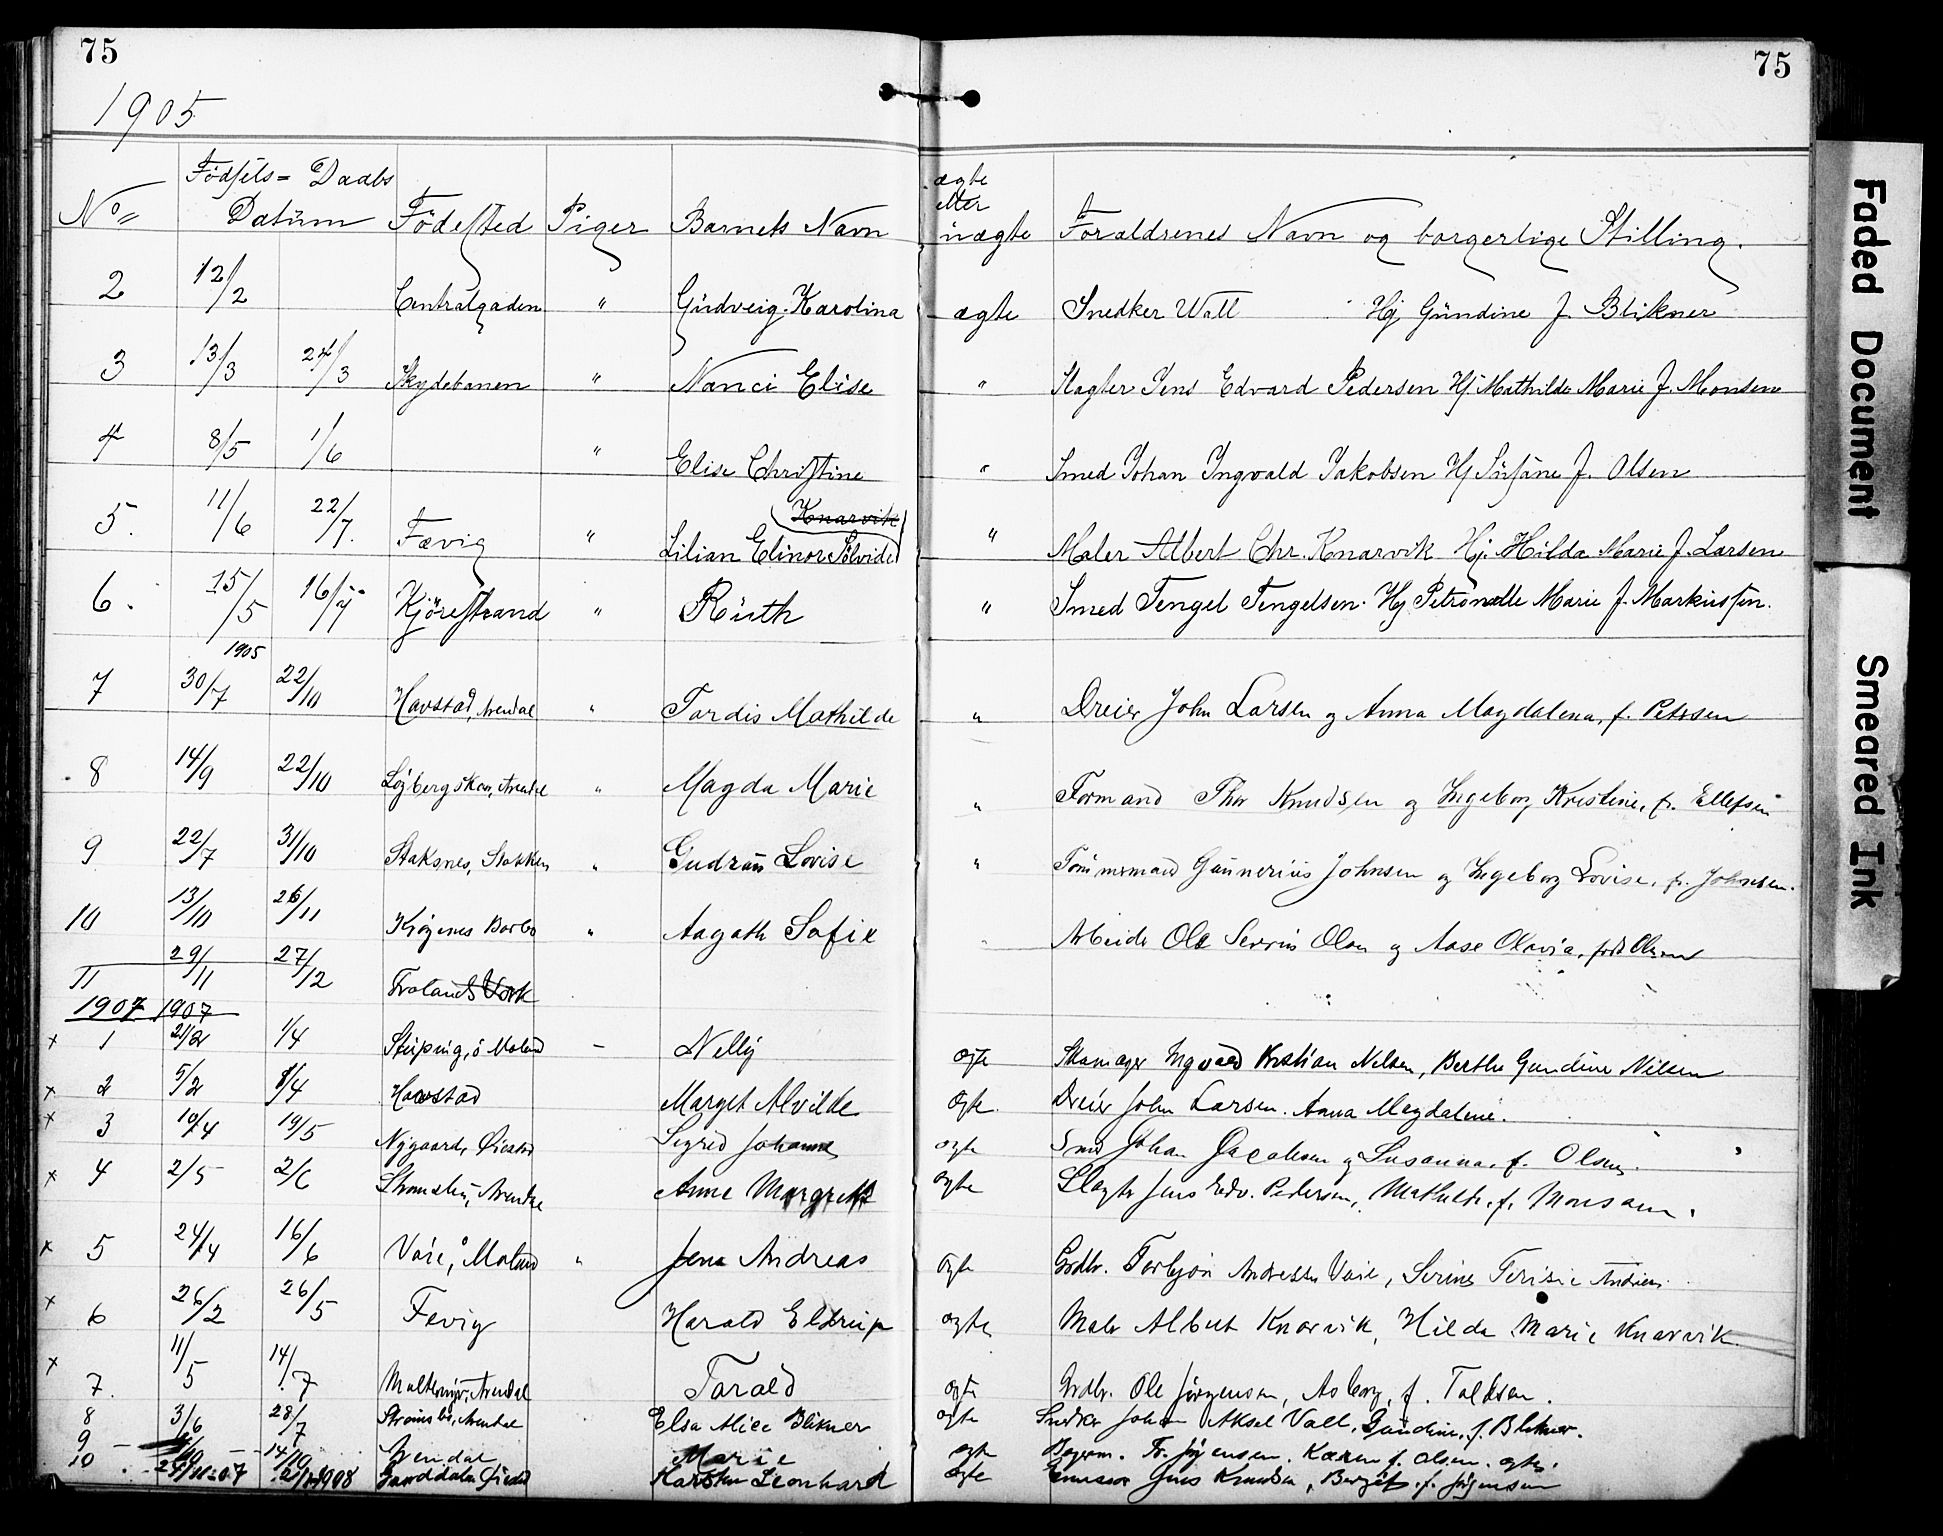 75 75
1905
Födsels= Daabs ægte eller
No= Datüm Födested Piger Barnets Navn üægte Forældrenes Navn og borgerlige Stilling.
2 12/2 Centralgaden " Güdveig. Karolina ægte Snedker Wall Hj Gündine f. Blikner
3 13/3 24/3 Skydebanen " Nanci Elise " Slagter Jens Edvard Pedersen Hj. Mathilde Marie f. Monsen
4 8/5 1/6 " Elise Christine " Smed Johan Ingvald Jakobsen Hj Süsäne f. Olsen
Knarvik
5. 11/6 22/7. Fævig " Lilian Elinor Sølvide " Maler Albert Chr. Knarvik Hj. Hilda Marie f. Larsen
6. 15/5 16/7 Kjörestrand " Rüth " Smed Tengel Tengelsen. Hj Petronelle Marie f. Markussen.
1905
7 30/7 22/10 Havstad, Arendal " Tordis Mathilde " Dreier John Larsen og Anna Magdalena, f. Petersen
8 14/9 22/10 Arendal " Magda Marie " Formand Thor Knudsen og Ingeborg Kristine, f. Ellefsen
9 22/7 31/10 Staksnes, Stokken " Gudrün Lovise " Tömmermand Gunnerius Johnsen og Ingeborg Lovise, f. Johnsen.
10 13/10 26/11 Barbo " Aagoth Sofie " Arbeider Ole Olsen og Aase Olavia, född Olsen
11 29/11 27/12 Frolands Værk
1907 1907
x 1 21/2 1/4 ö Moland - Nelly ægte Skomager Ingvald Kristian Nilsen, Berthe Gundine Nilsen
x 2 5/2 1/4 Havstad Marget Alvilde ægte. Dreier John Larsen. Anna Magdalene.
x 3 10/4 19/5 Nygaard, Öiestad Sigrid Johanne ægte Smed Johan Jacobsen og Susanna. f. Olsen.
x 4 2/5 2/6 Strömsbü, Arendal Anne Margrethe ægte Slagter Jens Edv. Pedersen, Mathilde. f. Monsen.
x 5 24/4 16/6 Moland " Jens Andreas ægte Grdbr. Torbjön Andresen Vaie, Serine Terisie Andresen.
x 6 26/2 26/5 Fevig Harald Eldrup ægte Maler Albert Knarvik, Hilda Marie Knarvik
x 7. 11/5 14/7 Arendal Torald ægte Grdbr. Ole Jörgensen, Aaborg, f. Talksen.
8 3/6 28/7 Strömsbü, Arendal Elsa Alice Blikner ægte Snedker Johan Aksel Vall, Gündine, f. Blikner.
9 14/10 Arendal Marie ægte Fr. Jörgensen. Karen f. Olsen. ægte.
10 24/11-07 2/1-1908 Karsten Leonhard ægte Jens Knudsen, Berget. f. Jörgensen
Faded Document
Smeared Ink